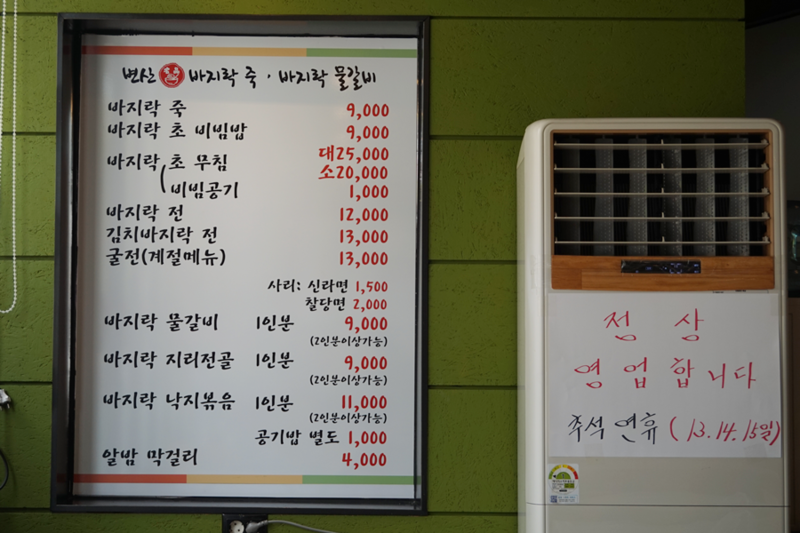 변산 바지락 죽 · 바지락 물갈비
바지락 죽 9,000
바지락 초 비빔밥 9,000
바지락 초 무침 대25,000
소20,000
비빔공기 1,000
바지락 전 12,000
김치바지락 전 13,000
굴전(계절메뉴) 13,000
사리: 신라면 1,500
찰당면 2,000
바지락 물갈비 1인분 9,000
(2인분이상가능)
바지락 지리전골 1인분 9,000
(2인분이상가능)
바지락 낙지볶음 1인분 11,000
(2인분이상가능)
공기밥 별도 1,000
알밤 막걸리 4,000
정상
영업합니다
추석 연휴 (13.14.15일)